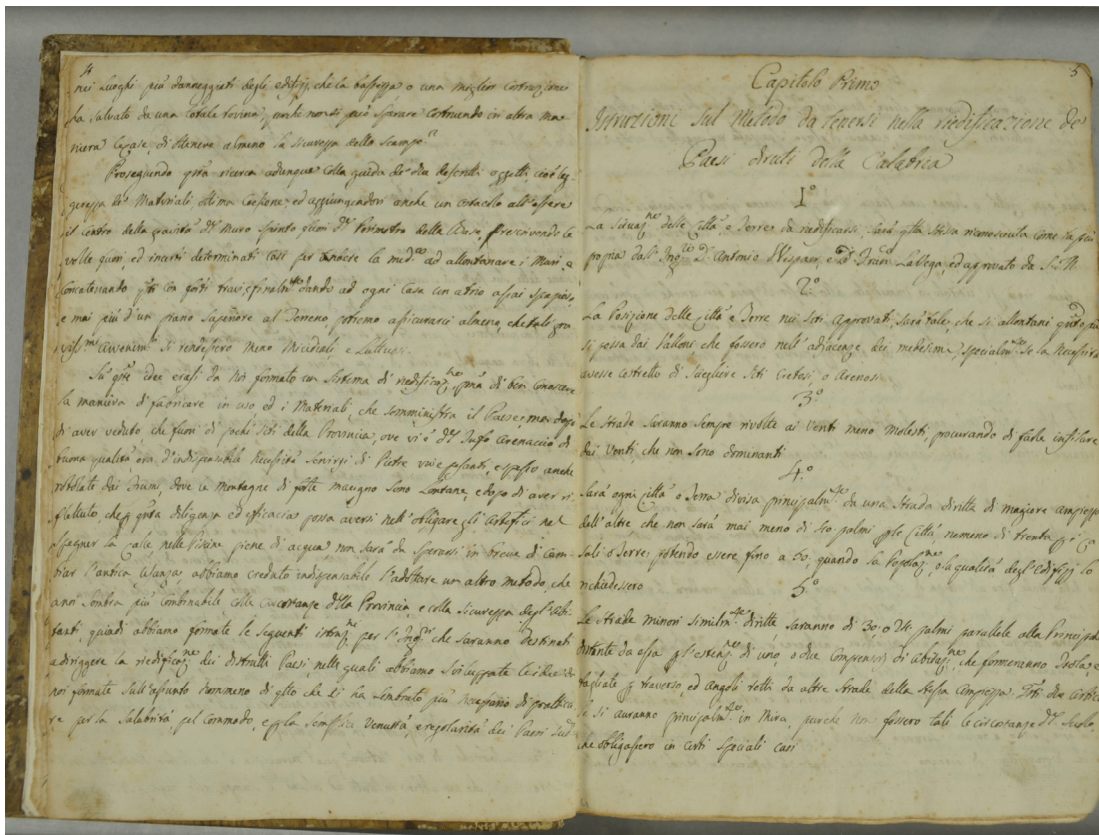 4
nei Luoghi più danneggiati degli edifizj, che la bassezza o una miglior costruzione
ha salvato da una totale rovina, perchè non si può sperare costruendo in altra ma
niera le Case, di ottenere almeno la sicurezza dello scampo
Proseguendo qsta ricerca adunque colla guida de' dia descritti oggetti, cioè leg
gerezza de' Materiali, ottima Coesione, ed aggiungendovi anche un ostacolo all'essere
il centro della gravità del Muro spinto fuori del Perimetro della Base, prescrivendo le
volte fuori, ed incerti determinati casi per la med. ad allontanare i Muri, e
concatenando qsti con forti travi, e finalmte dando ad ogni Casa un atrio assai spazioso
e mai più d'un piano superiore al Terreno, potremo assicurarci almeno, che tali gra
viss.mi avvenim.ti si rendessero meno micidiali e Luttuosi.
Su qste idee erasi da Noi formato un sistema di riedificaz.ne, pma di ben conoscere
la maniera di fabricare in uso ed i Materiali, che somministra il Paese; ma dopo
di aver veduto, che fuori di pochi siti della Provincia, ove vi è del Tufo Arenaccio di
buona qualità, era d'indispensabile Necessità servirsi di Pietre vive pesanti, e spesso anche
rotolate dai Fiumi, dove le montagne di forte macigno sono Lontane, e dopo di aver ri
flettuto, che p quta diligenza ed efficacia possa aversi nell'obbligare gli Artefici nel
spegner la calce nelle Piscine piene di acqua non sarà da sperarsi in breve di cam
biar l'antica Usanza abbiamo creduto indispensabile l'adottare un altro metodo, che
anzi sembra più combinabile colle circostanze della Provincia, e colla sicurezza degl'Abi
tanti, quindi abbiamo formate le seguenti istruz.ni per l'Ing.ri che saranno destinati
a diriggere la riedificaz.ne dei distrutti Paesi, nelle quali abbiamo sviluppate le idee da
noi formate sull'assunto nommeno di qllo che ci è sembrato più necessario di prattica
re per la Salubrità pel commodo, e p la semplice Venustà, e regolarità dei Paesi Sud
5
Capitolo Primo
Istruzioni sul Metodo da tenersi nella riedificazione de
Paesi diruti della Calabria
1°
La Situaz.ne delle Città, e Terre da riedificarsi, sarà qlla stessa riconosciuta come la più
propria dall'Ing.re D. Antonio Winspear, e D. Fran.co LaVega, ed approvato da S. M.
2°
La Posizione delle Città e Terre nei siti approvati, sarà tale, che si allontani quto più
si possa dai Valloni che fossero nell'adiacenze dei medesimi, specialm.te se la Necessità
avesse costretto di scegliere siti Cretosi, o Arenosi
3°
Le Strade saranno sempre rivolte ai Venti meno Molesti, procurando di farle infilare
dai Venti, che non sono dominanti
4°
Sarà ogni Città o Terra divisa principalm.te da una Strada diritta di magiore ampiezza
dell'altre che non sarà mai meno di 40 palmi p le Città, nè meno di trenta p i Ca
sali o Terre, potendo essere fino a 50, quando la Popolaz.ne, o la qualità degl'edifizj lo
richiedessero
5°
Le Strade minori similm.te diritte saranno di 30, o 24 palmi parallele alla Principale
distante da essa p l'estenz.ne di uno, o due Comprensorj di Abitaz.ne, che formeranno Isola, e
tagliate p traverso, ed Angoli retti da altre Strade della stessa ampiezza.
se si avranno principalm.te in Mira, purchè non fossero tali le circostanze del Suolo,
che obbligassero in certi speciali casi